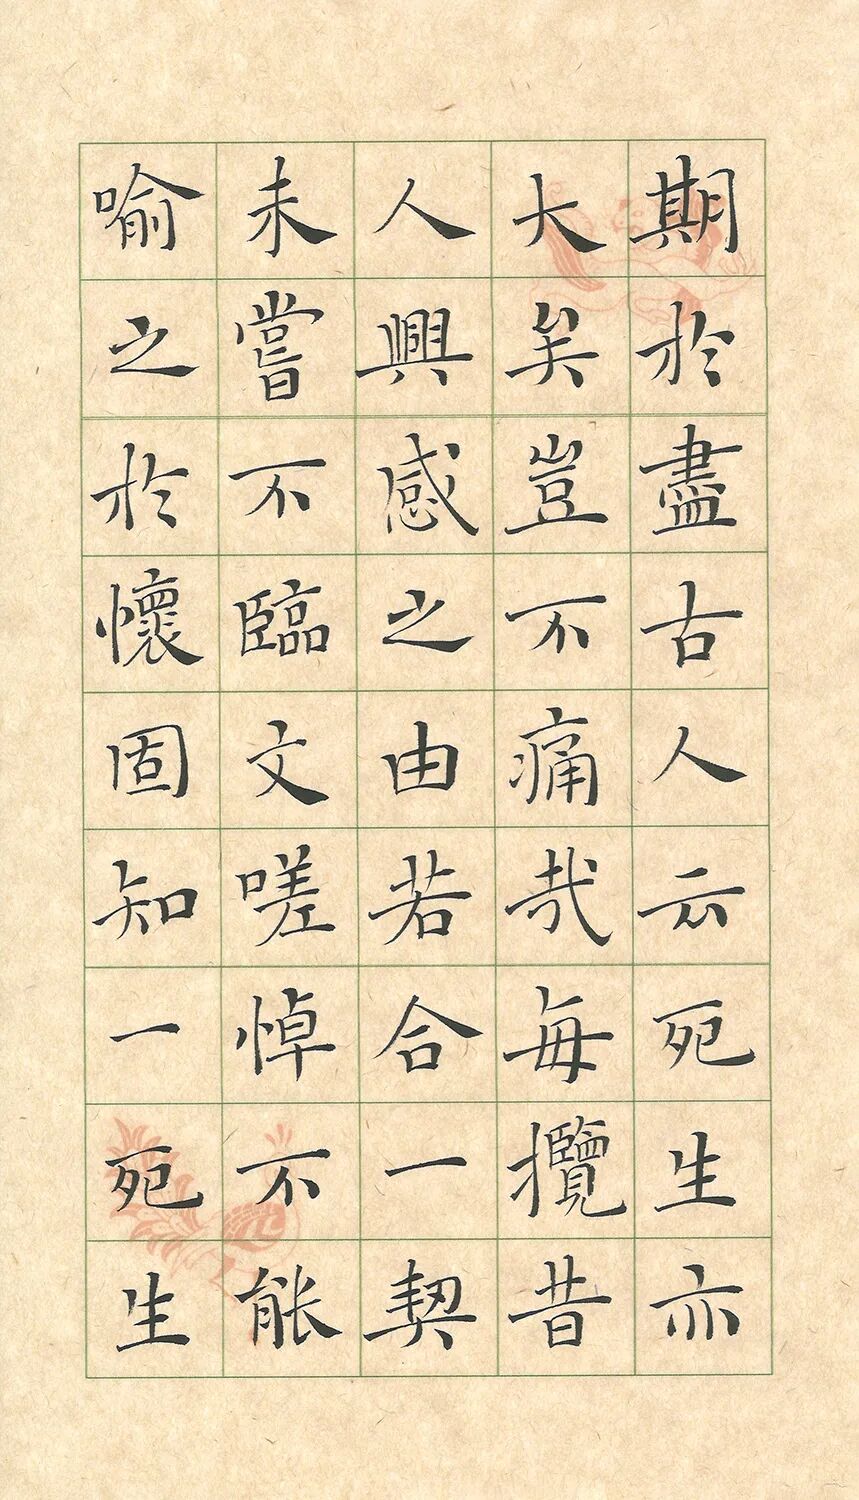 期於盡古人云死生亦
大矣豈不痛哉每攬昔
人興感之由若合一契
未嘗不臨文嗟悼不能
喻之於懷固知一死生